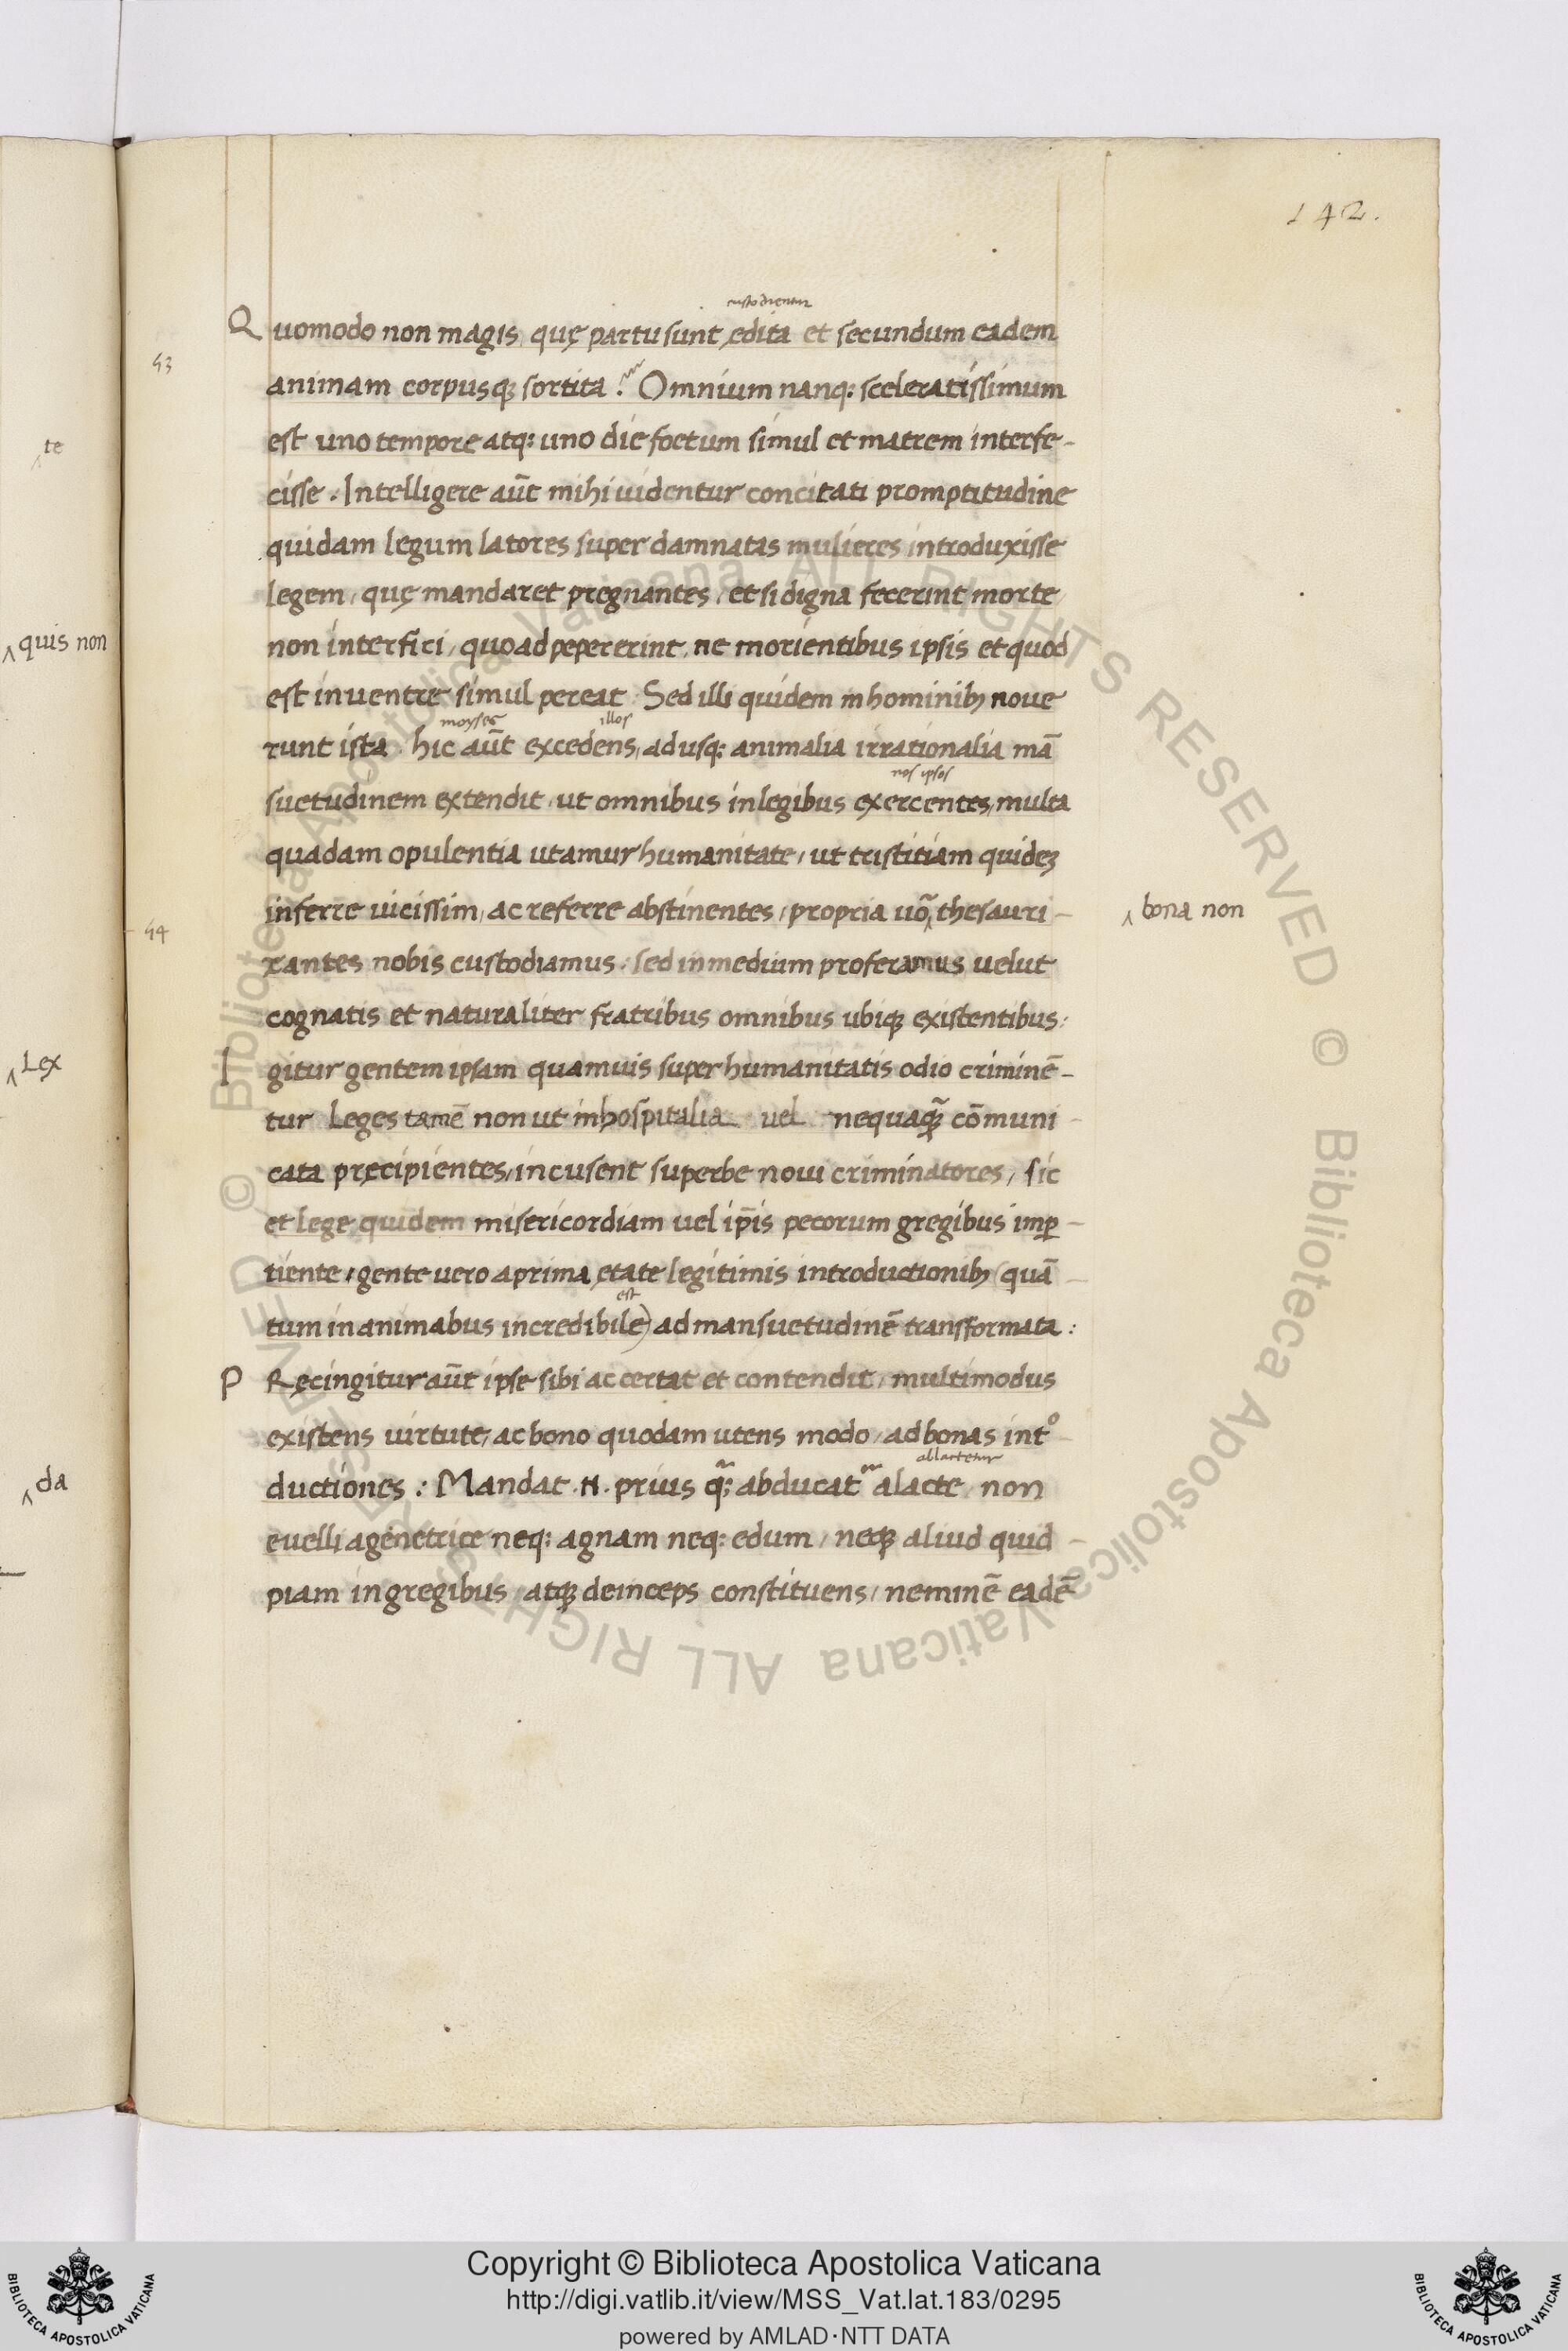 142.
custodientur
Quomodo non magis, quę partu sunt ędita et secundum eadem
53
animam corpusq; sortita? Omnium nanq: sceleratissimum
est uno tempore atq: uno die foetum simul et matrem interfe-
te
cisse. Intelligere aūt mihi uidentur concitati promptitudine
quidam legum latores super damnatas mulieres introduxisse
legem, quę mandaret pregnantes, et si digna fecerint morte,
quis non
non interfici, quoad pepererint, ne morientibus ipsis et quod
est in uentre simul pereat. Sed illi quidem in hominib; noue
moyses illos
runt ista. hic aūt excedens, ad usq: animalia irrationalia mā
nos ipsos
suetudinem extendit, ut omnibus in legibus exercentes, multa
quadam opulentia utamur humanitate, ut tristitiam quidez
inferre uicissim, ac referre abstinentes, propria uō ‸ thesauri-
‸ bona non
54
xantes nobis custodiamus, sed in medium proferamus uelut
cognatis et naturaliter fratribus omnibus ubiq; existentibus:
Igitur gentem ipsam quamuis super humanitatis odio criminē-
‸ Lex
tur Leges tamē non ut inhospitalia uel nequaq̃; cōmuni-
cata pręcipientes, incusent superbe noui criminatores, sic
et lege quidem misericordiam uel ip̄is pecorum gregibus imꝑ-
tiente, gente uero a prima ętate legitimis introductionib; (quā-
est
tum in animabus incredibile) ad mansuetudinē transformata:
PRęcingitur aūt ipse sibi ac certat et contendit, multimodus
existens uirtute, ac bono quodam utens modo, ad bonas intº-
ablactetur
ductiones: Mandat .N. prius q̃; abducat̃ a lacte, non
‸ da
euelli a genetrice neq: agnam neq: edum, neq; aliud quid-
piam in gregibus, atq; deinceps constituens, neminē eadē
© Biblioteca Apostolica Vaticana ALL RIGHTS RESERVED © Biblioteca Apostolica Vaticana ALL RIGHTS RESERVED
Copyright © Biblioteca Apostolica Vaticana
http://digi.vatlib.it/view/MSS_Vat.lat.183/0295
powered by AMLAD·NTT DATA
BIBLIOTECA APOSTOLICA VATICANA
BIBLIOTECA APOSTOLICA VATICANA